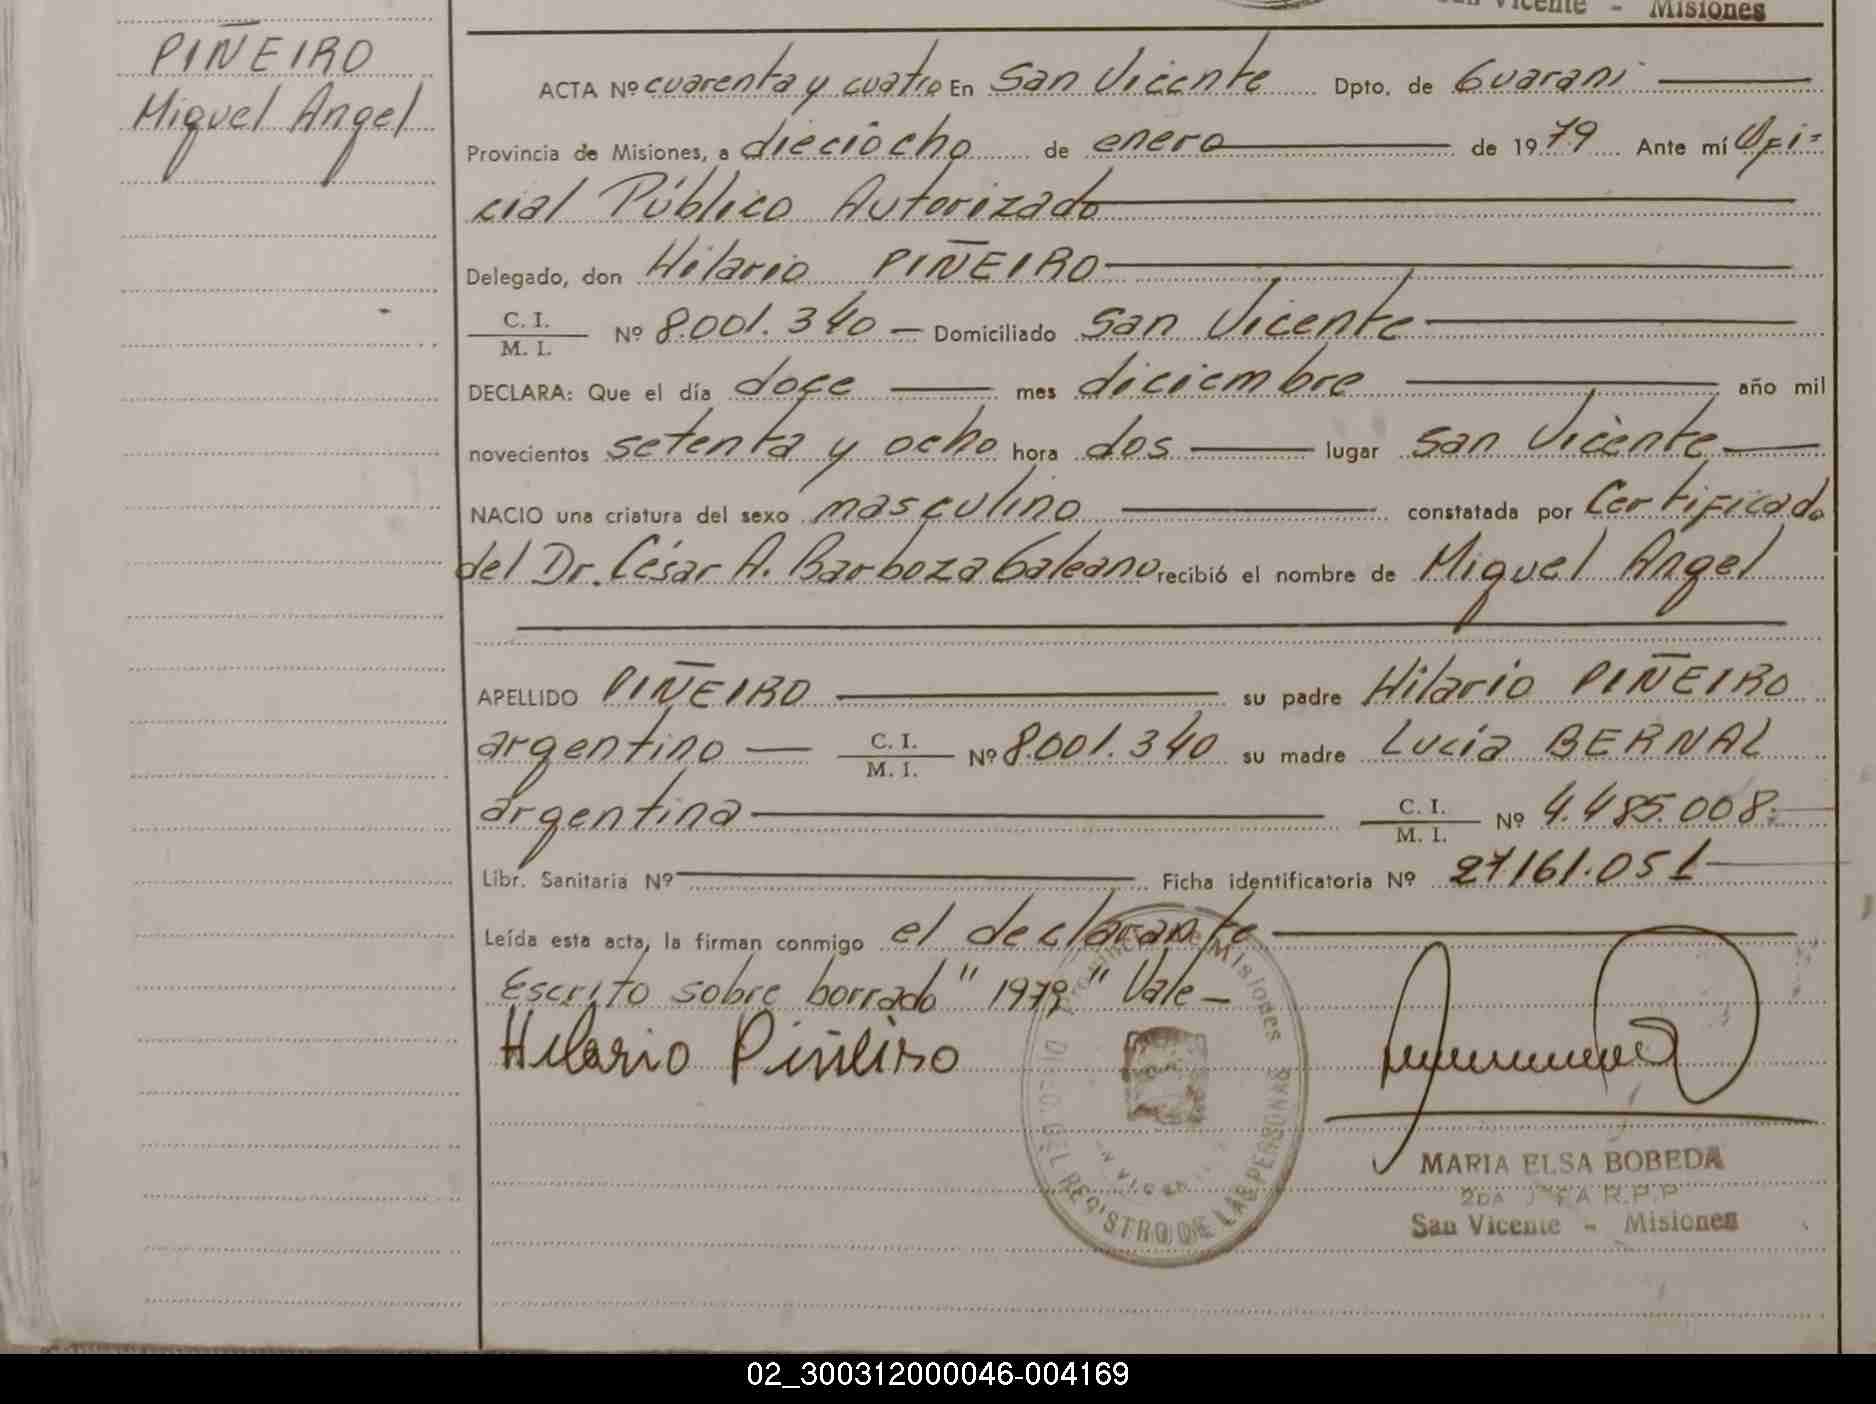 San Vicente - Misiones
PIÑEIRO
Miguel Angel
ACTA Nº cuarenta y cuatro En San Vicente Dpto. de Guarani
Provincia de Misiones, a dieciocho de enero de 1979 Ante mí Ofi-
cial Público Autorizado
Delegado, don Hilario PIÑEIRO
C. I.
M. I. Nº 8.001.340 Domiciliado San Vicente
DECLARA: Que el día doce mes diciembre año mil
novecientos setenta y ocho hora dos lugar San Vicente
NACIO una criatura del sexo masculino constatada por Certificado
del Dr. César A. Barboza Galeano recibió el nombre de Miguel Angel
APELLIDO PIÑEIRO su padre Hilario PIÑEIRO
argentino C. I.
M. I. Nº 8.001.340 su madre Lucía BERNAL
argentina C. I.
M. I. Nº 4.485.008
Libr. Sanitaria Nº Ficha identificatoria Nº 27161.051
Leída esta acta, la firman conmigo el declarante
Escrito sobre borrado "1979" Vale
Hilario Piñeiro
Misiones
REGISTRO DE LAS PERSONAS
MARIA ELSA BOBEDA
2DA R.P.P
San Vicente - Misiones
02_300312000046-004169